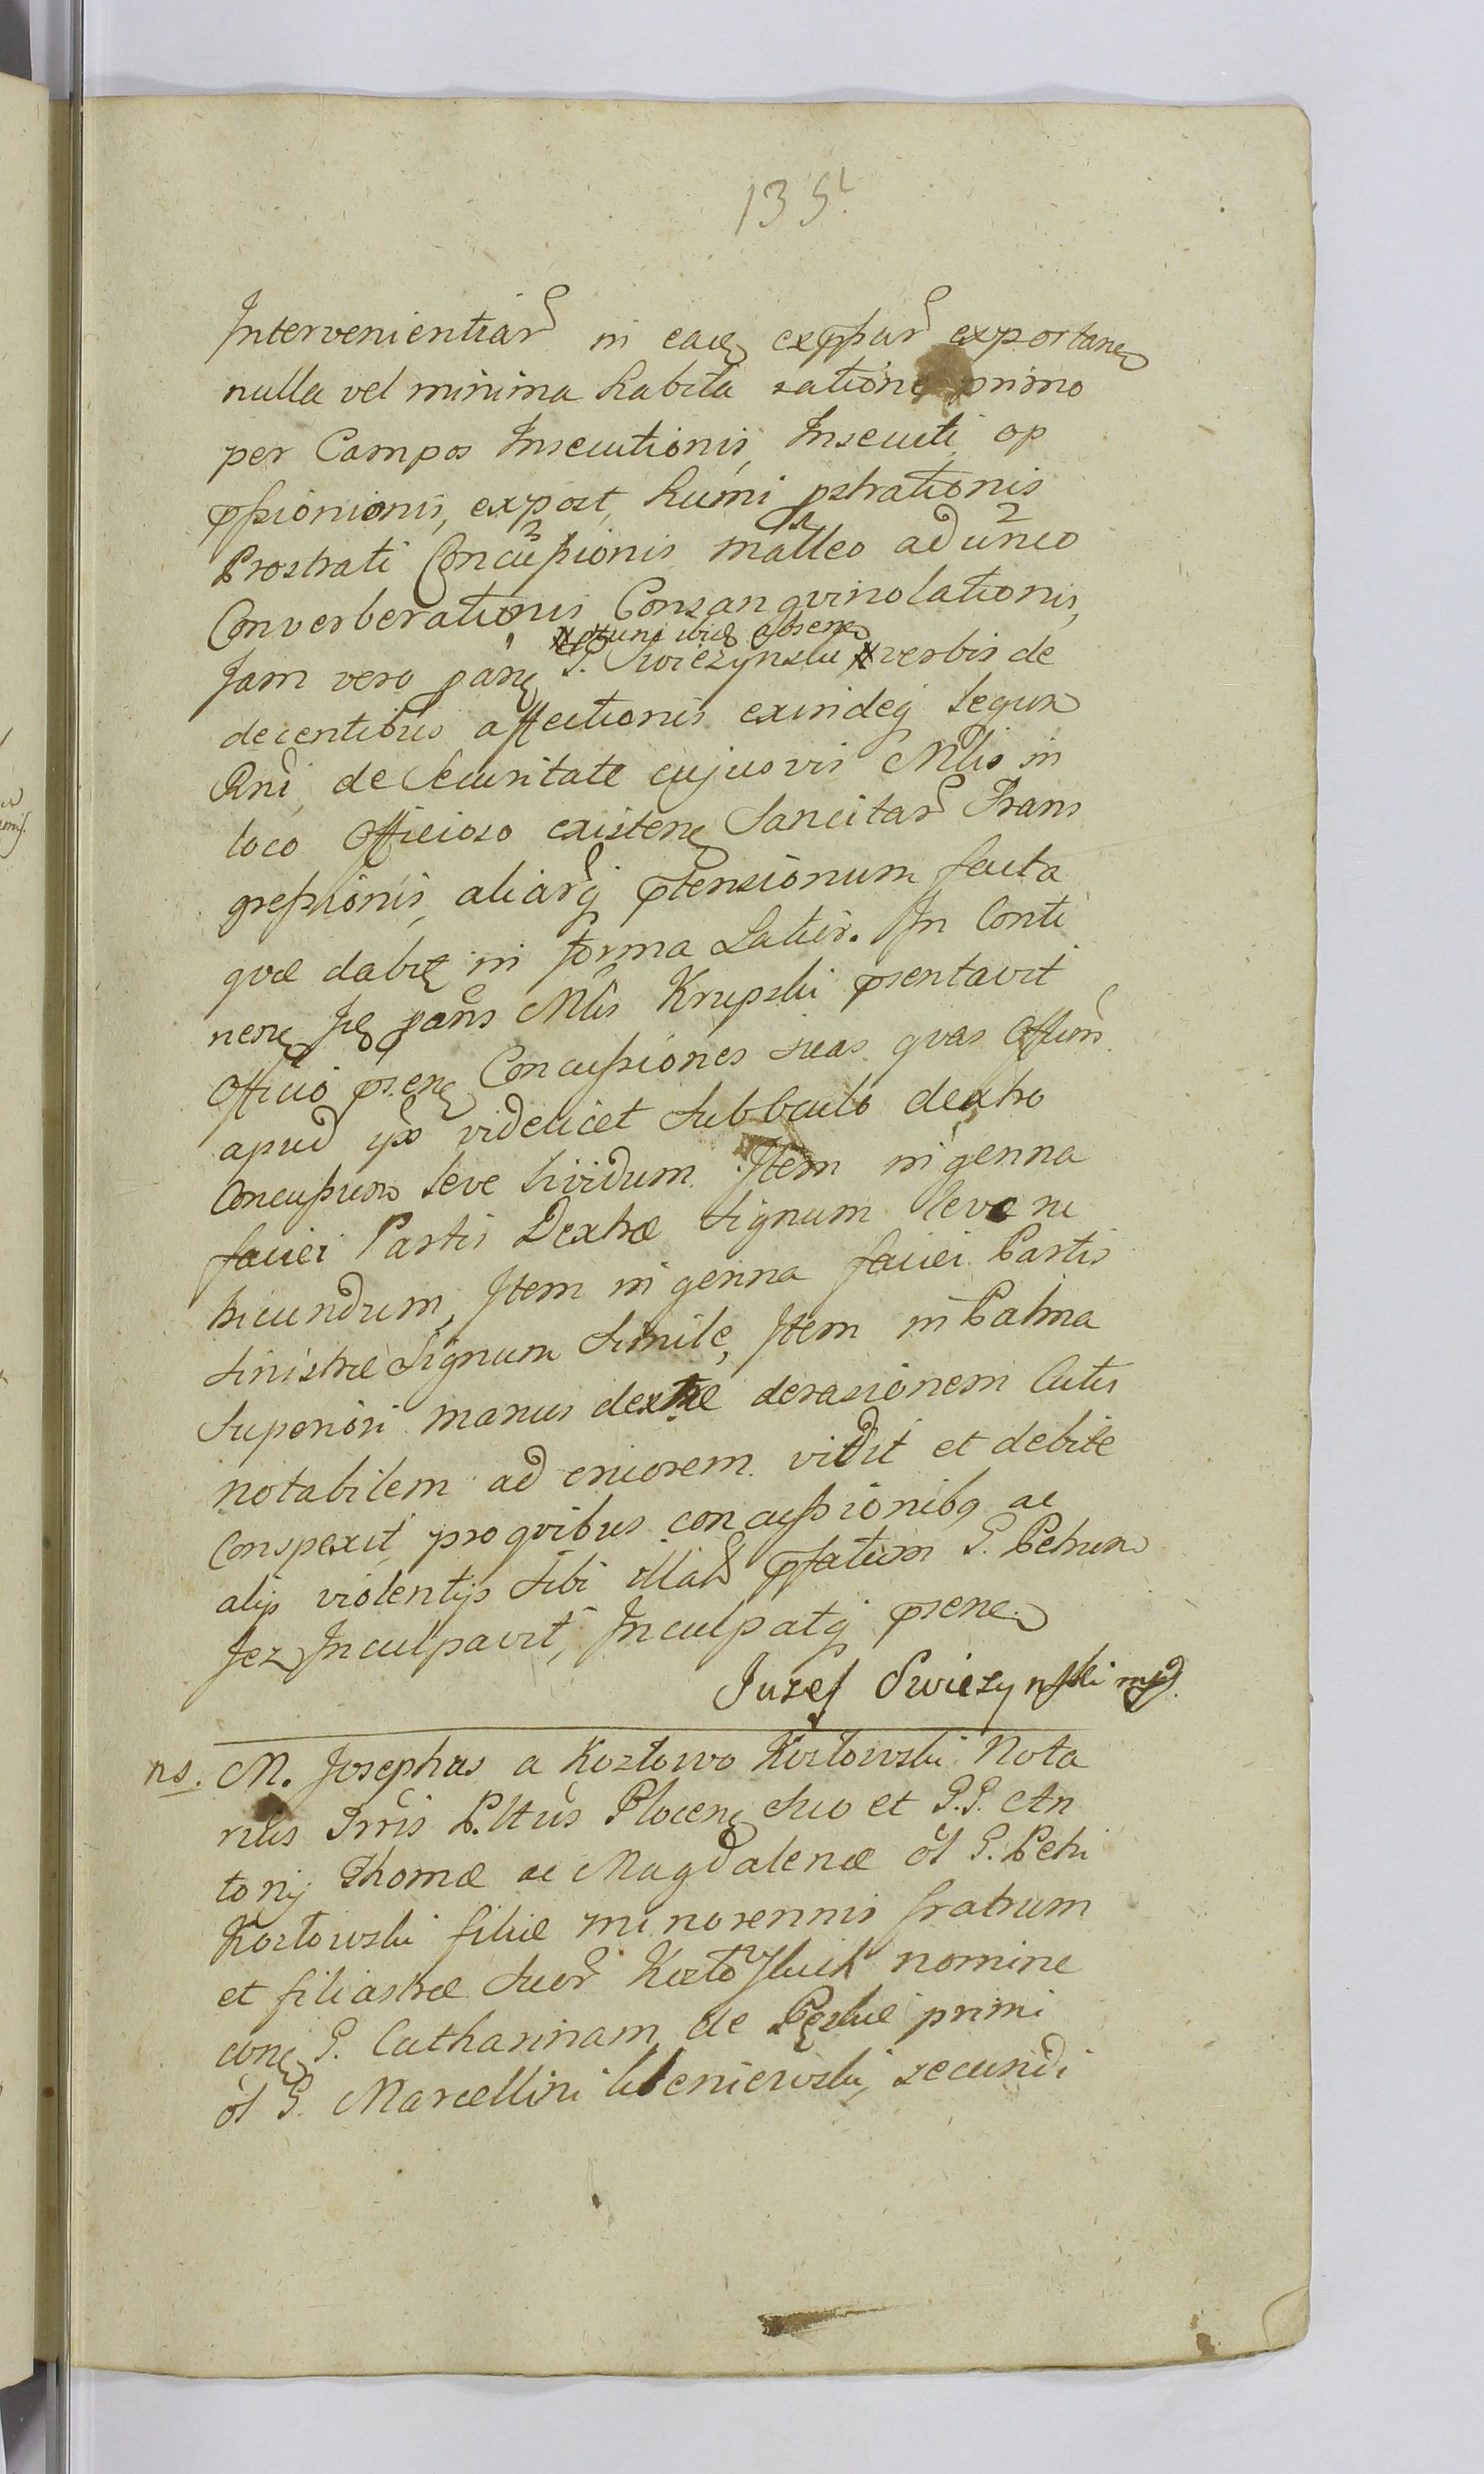 135
Intervenientiar in eaū exppsar exportanē
nulla vel minima habita ratione primo
per Campos Insecutionis, Insecuti, op
pssionionis, expost, humi pstrationis
Prostrati Concussionis malleo adunco
Converberationis Consangvinolationis,
tunc ibid absen
Jam vero parte G. Swiezynski verbis de
decentibus affectionis exindeq Legum
Rni de Securitate cujusvis Nblis in
loco Officioso existen Sancitar Trans
gressionis, aliarq ptensionum facta
qvæ dabit in forma Latior. In Conti
nen Je pans Nblis Krupski psentavit
Officio psen Concussiones suas qvas Offium
apud ipo videlicet Subbculo dextro
Concussum leve lividum. Item in genna
faciei Partis Dextræ Signum leve ru
bicundum, Item in genna faciei Partis
Sinistræ Signum Simile, Item in Palma
Superiori manus dextræ derasionem Cutis
notabilem ad cruorem vidit et debite
Conspexit, pro qvibus concussionibq ac
alijs violentijs Sibi illat pfatum G. Petrum
Jez Inculpavit, Inculpatq psene
Juzef Swiezynski mp
ns. M. Josephus a Kozłowo Kozłowski Nota
rius Trris Pltus Plocen Suo et G.G. An
tonij Thomæ ac Magdalenæ ol G. Petri
Kozłowski filiæ minorennis fratrum
et filiastræ Suor Kozłowskich nomine
con G. Catharinam de Pęskie primi
ol G. Marcellini Uleniewski, secundi